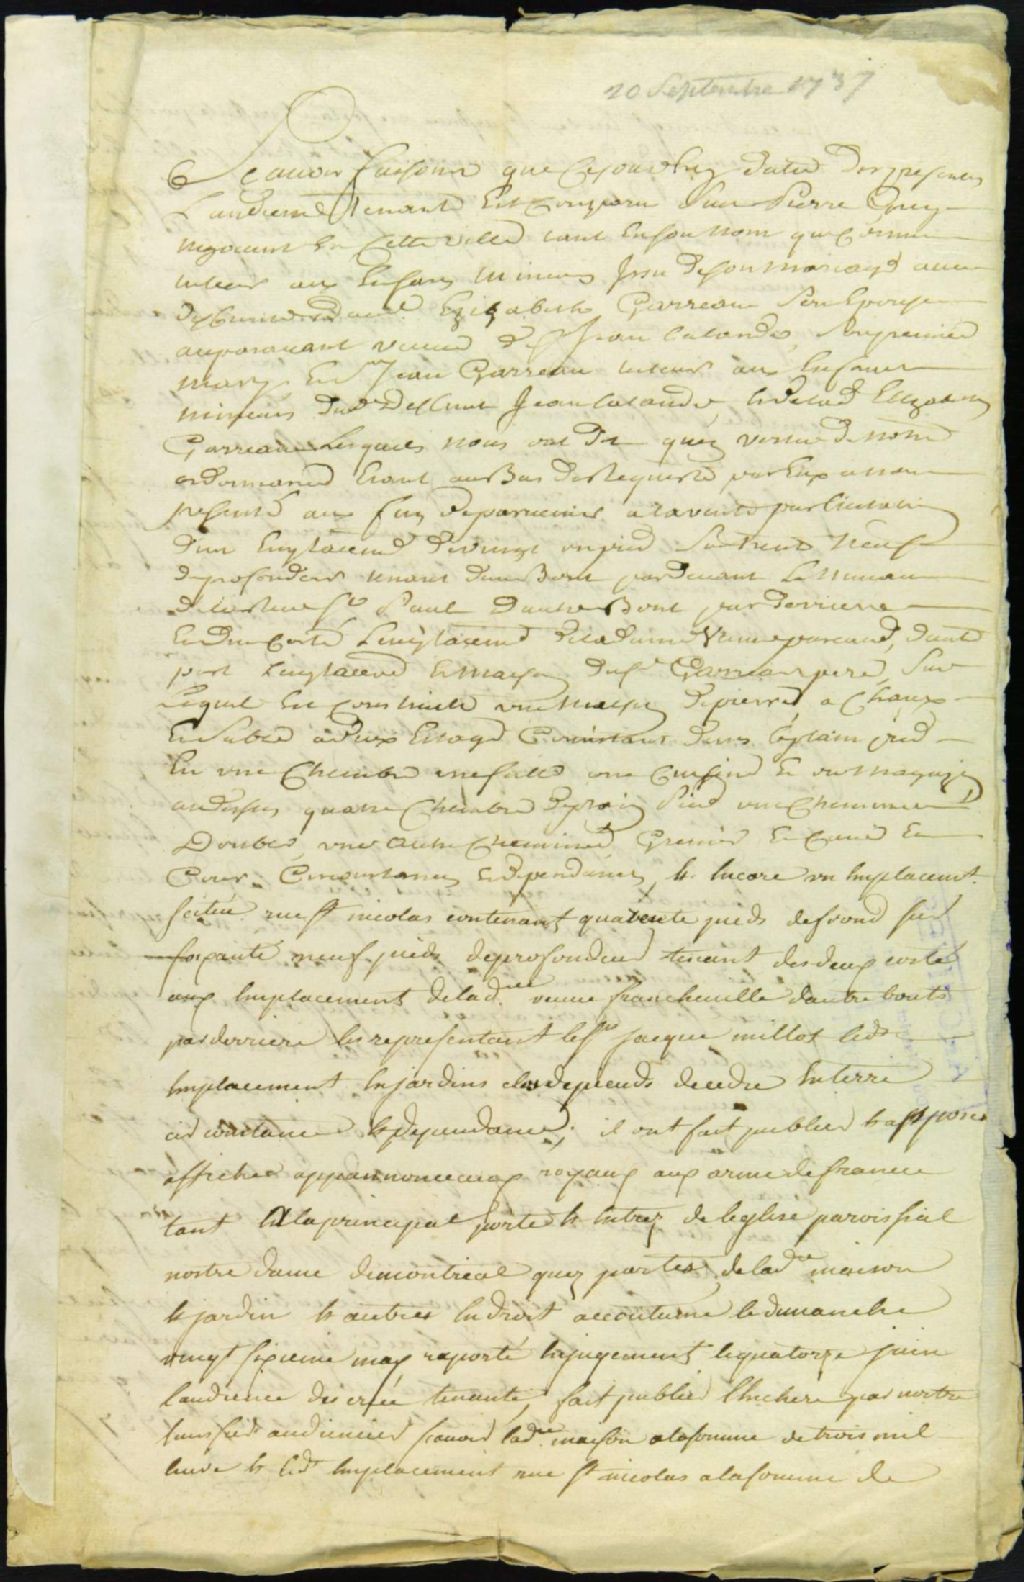 10 Septembre 1737
Scavoir faisons que Cejourdhuy datte des presentes
Laudience Tenante Est Comparu Sieur Pierre Guy
negociant En Cette ville tant En son nom que Comme
tuteur aux Enfans mineurs Issu de son mariage avec
deffunte dame Elizabeth Garreau Son Epouse
auparavant veuve de Jean Lalande, Son premier
mary Et Sr Jean Garreau tuteur aux Enfans
mineurs dud. Deffunt Jean Lalande, & delad. Elizabeth
Garreau Lesquels nous ont Dit quen vertu de Notre
ordonnance Etant au Bas de Requeste par Eux a nous
presenté aux fins de parvenir a la vente par licitation
dun Emplacement de vingt un pied Sur trente Neuf
de profondeur tenant dun Bout par devant
de la Rue St Paul Dautre Bout par derriere
En Dun Costé Lemplacement de la dame Veuve dautre
part Lemplacement & maison du Sr Garreau pere, Sur
Lequel Est Construite une maison de pierre a Chaux
Et Sable a deux Etage Consistant dans le plain pied
En une Chambre une Salle une Cuisine Et un magazin
au dessus quatre Chambre de plain pied une Cheminée
Double, une autre Cheminée Grenier Et Cave Et
Cour Circonstances Et dependances, & Encore un Emplacement
scitué rue St nicolas contenant quarente pieds de frond sur
soixante neuf pieds de profondeur tenant des deux costé
aux Emplacement de lad.ne veuve francheville dautre bouts
par derriere les representant le Sr jacque millot led.
Emplacement En jardins clos de pieuds de cedre En terre
circonstance & dependance, il ont fait publier & apposé
affiche appannonceaux royaux aux arme de france
tant A la principal porte & Entrez de leglise paroissial
nostre dame de montreal quez portes de lad.ne maison
& jardin & autres Endroit accoutumé le dimanche
vingt sixieme may raporté En jugement le quatorze juin
laudience des criée tenante, fait publier lEnchere par nostre
huissier audiencier scavoir lad.ne maison a la somme de trois mil
livre & led. Emplacement rue St nicolas a la somme de